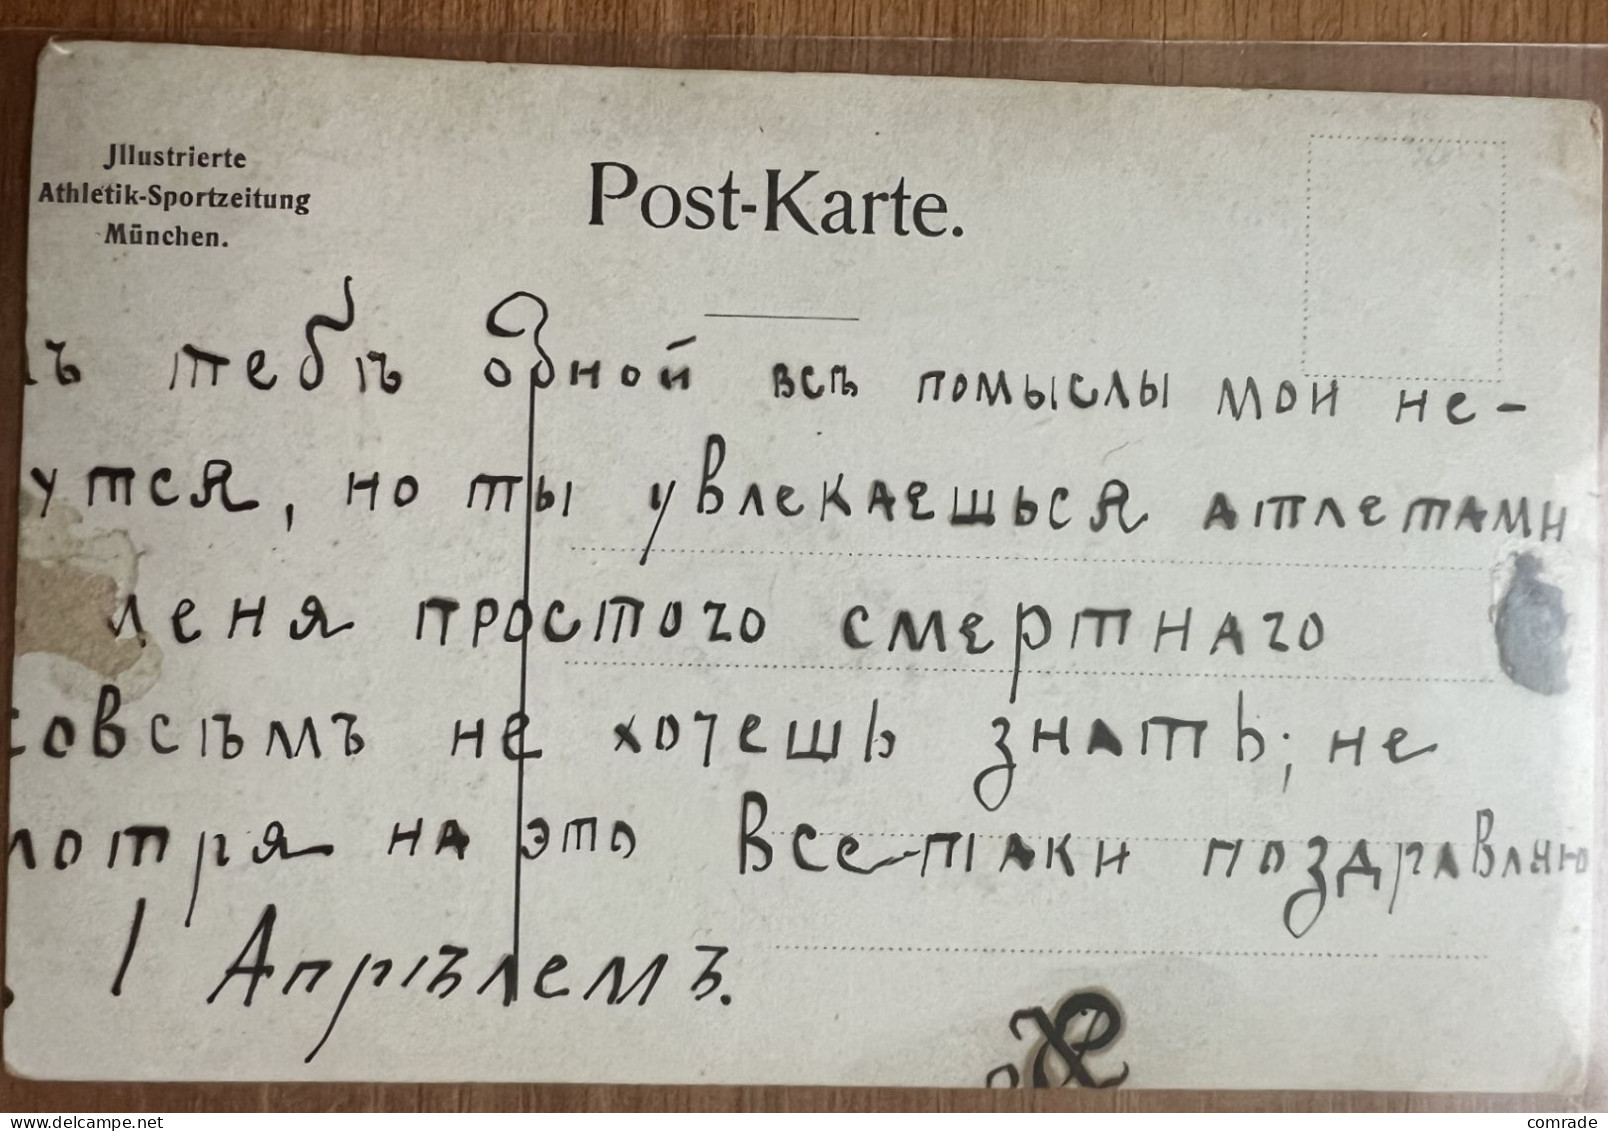 Jllustrierte
Athletik-Sportzeitung
München.
Post-Karte.
ъ тебѣ одной всѣ помыслы мои не-
утся, но ты увлекаешься атлетами
меня простого смертнаго
совсѣмъ не хочешь знать; не
мотря на это все-таки поздравляю
1 Апрѣлемъ.
comrade
delcampe.net